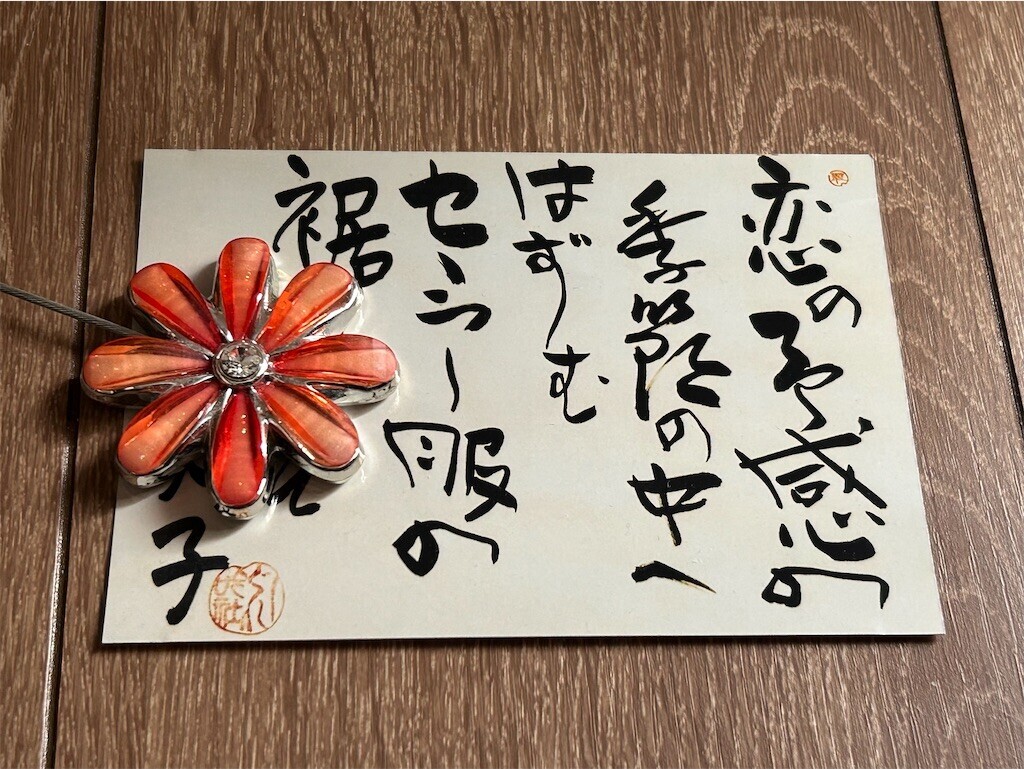 恋の予感の
季節の中へ
はずむ
セーラー服の
裾
子